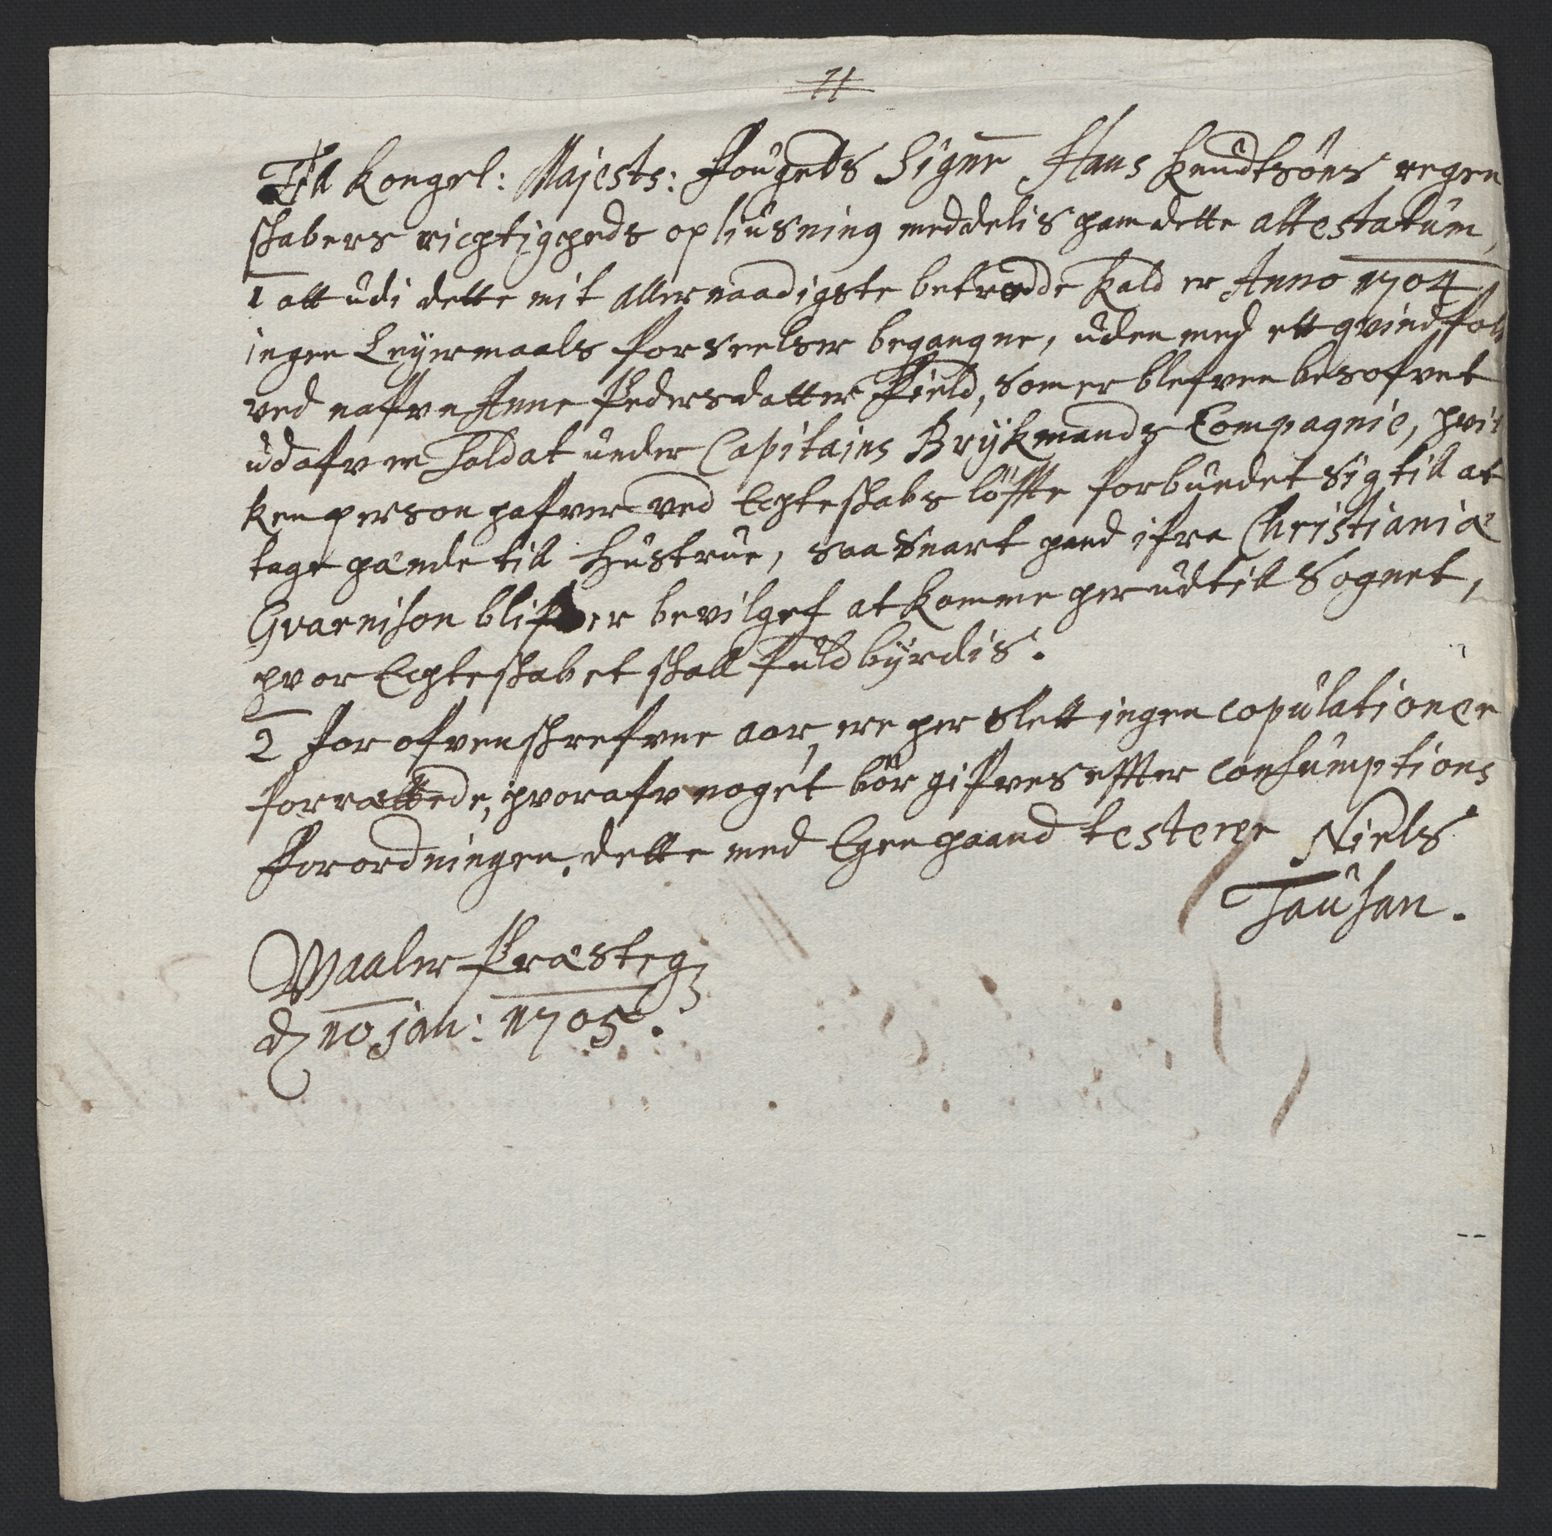 11
Till Kongel: Majests: Fougets Signe Hans Knudtsøns regen
skabers richtigheds opliusning meddelis ham dette attestatum,
1 att udi dette mit allernaadigste betrodde Kald er Anno 1704
ingen Leyermaals forseelser begangne, uden med ett qvindfolk
ved nafvn Anne Pedersdatter Field, som er blefven besofvet
udafv en Soldat under Capitains Brykmands Compagnie, hvil
ken person hafver ved Echteskabs løffte forbundet sig till at
tage hænde till Hustrue, saa snart hand ifra Christianiæ
Gvarnison blifver bevilget at komme her ud till Sognet,
hvor Echteskabet skall fuldbyrdis.
2 For ofvenskrefvne aar, ere her slett ingen copulationer
forrættede, hvorafv noget bør gifves effter consumptions
forordningen, dette med Egen haand testerer Niels
Tausan.
Waaler Præsteg
d 10 jan: 1705.